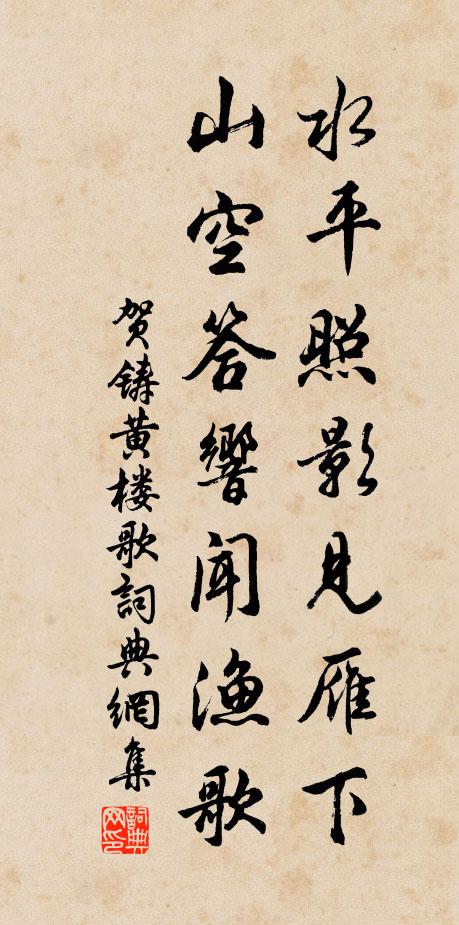 水平照影見雁下
山空答響聞漁歌
贺鑄黄楼歌詞典網集
詞典网印